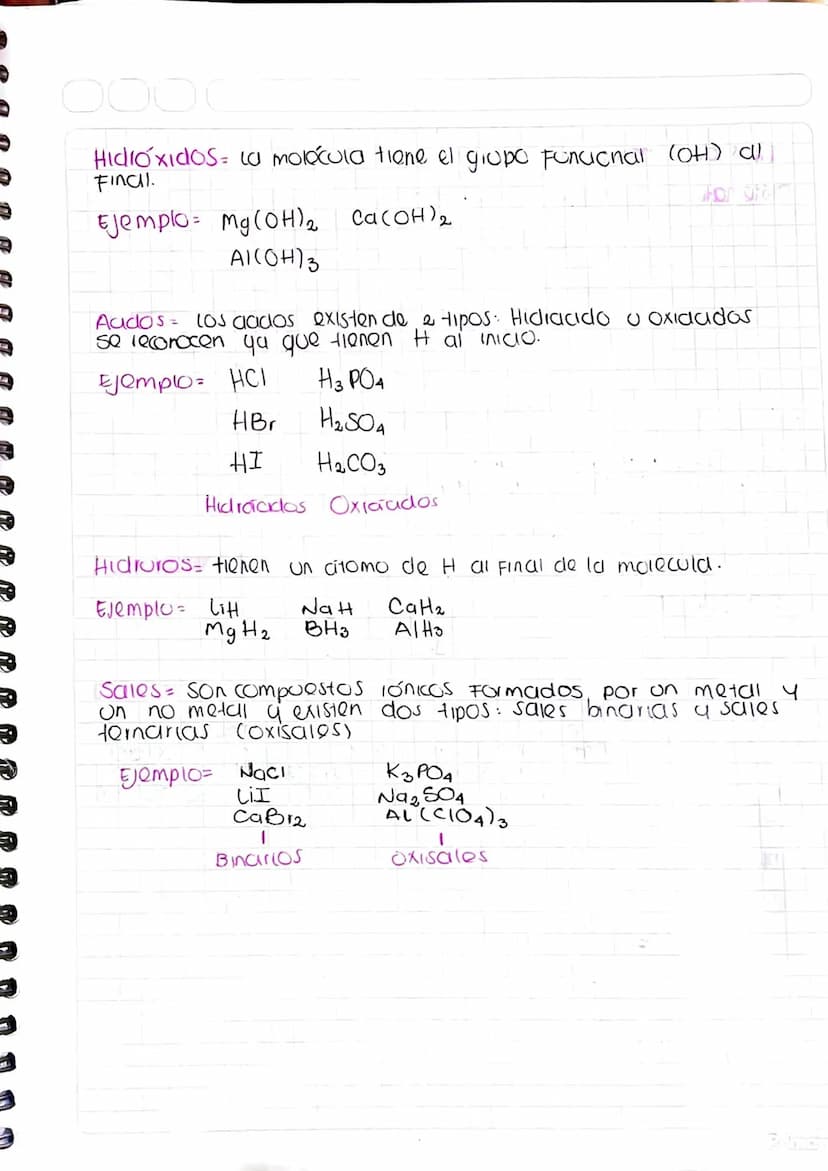 Hidróxidos= La molécula tiene el grupo Funcional (OH) al
Final.
Ejemplo= Mg(OH)₂ Ca(OH)₂
Al(OH)₃
Acidos= Los acidos existen de 2 tipos: Hidracido u oxiacidos
se reconocen ya que tienen H al inicio.
Ejemplo= HCl H₃PO₄
HBr H₂SO₄
HI H₂CO₃
Hidrácidos Oxiácidos
Hidruros= tienen un átomo de H al Final de la molecula.
Ejemplo= LiH NaH CaH₂
MgH₂ BH₃ AlH₃
Sales= Son compuestos iónicos Formados, por un metal y
un no metal y existen dos tipos: sales binarias y sales
ternarias (oxisales)
Ejemplo= NaCl K₃PO₄
LiI Na₂SO₄
CaBr₂ Al(ClO₄)₃
Binarios Oxisales